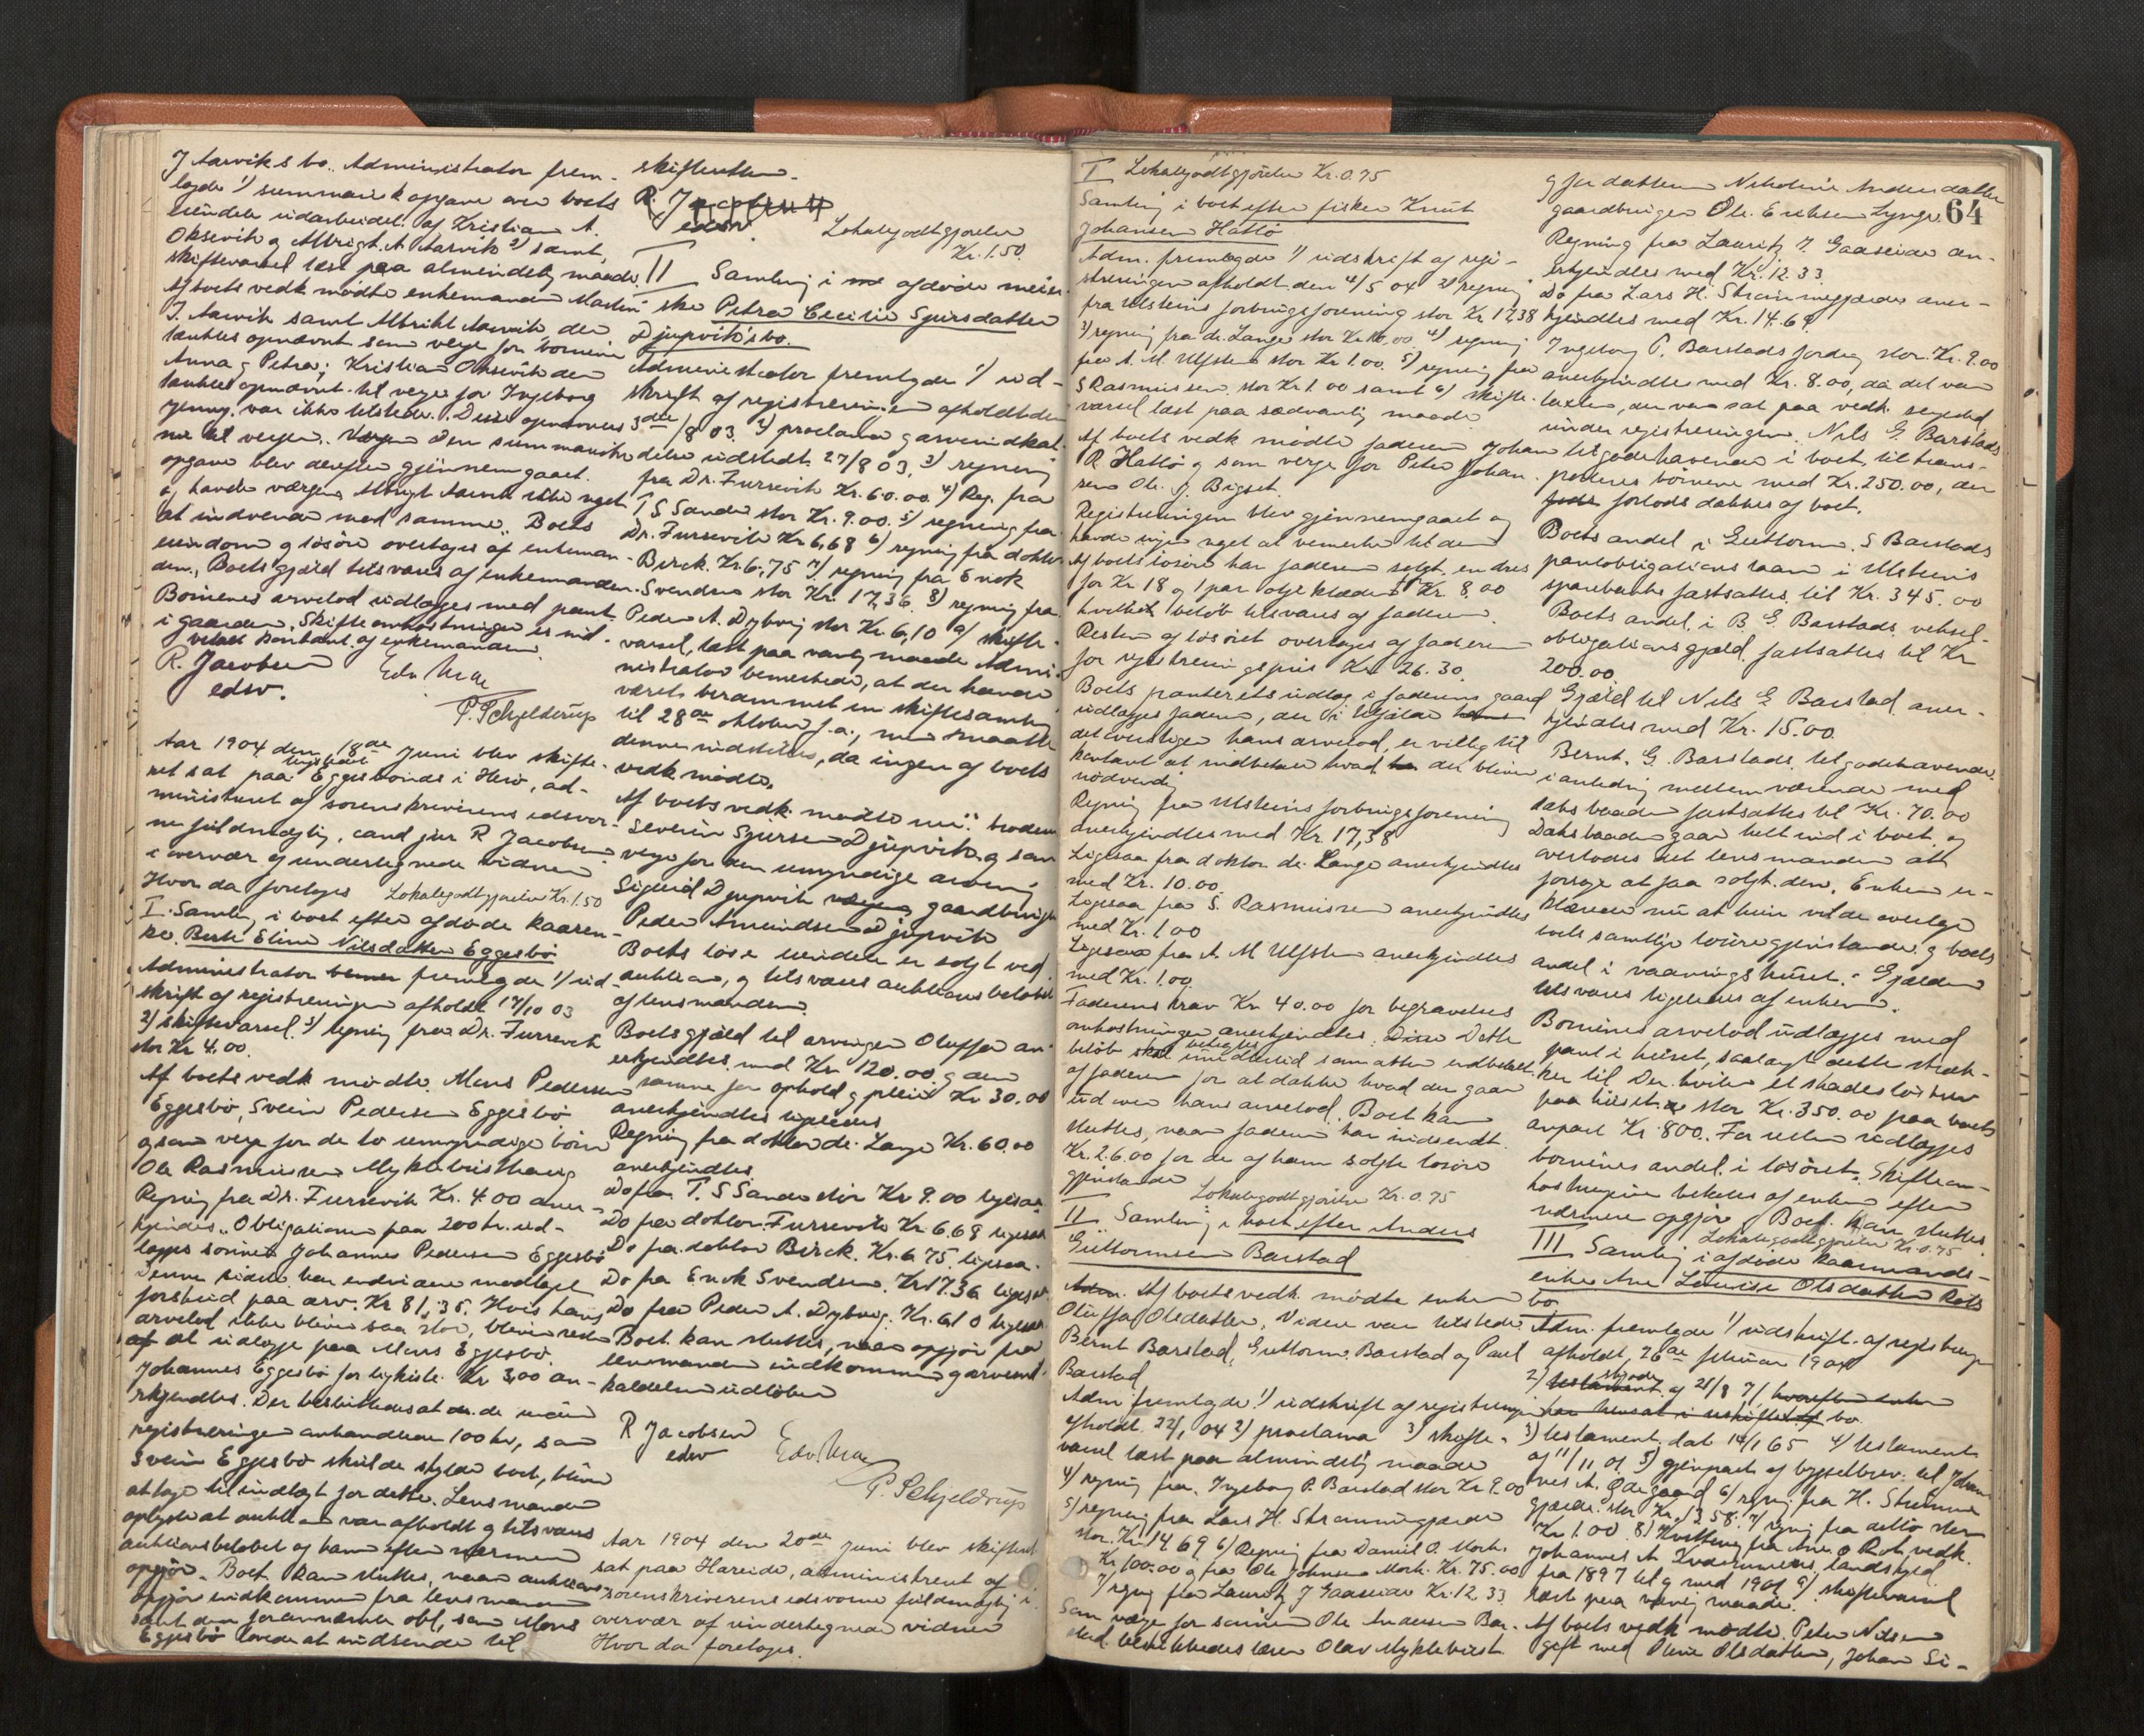 J Aarviks bo. Administrator frem-
lagde 1) summarisk opgave over boets
eiendele udarbeidet af Kristian A.
Oksevik og Albrigt. A Aarvik 2) samt
skiftevarsel læst paa almindelig maade
Af boets vedk mødte enkemanden Martin
J. Aarvik samt Albrikt Aarvik, der
tænktes opnævnt som verge for børnene
Anna og Petra; Kristian Oksevik den
tænktes opnævnt til verge for Ingeborg
Jenny. var ikke tilstede. Disse opnævnes
nu til verger. Den summariske
opgave blev derefter gjennemgaaet.
og havde vergen Albrigt Aarvik ikke noget
at indvende mod samme. Boets
eiendom og løsøre overtages af enkeman-
den. Boets gjæld tilsvares af enkemanden.
Børnenes arvelod udlægges med pant
i gaarden. Skifteomkostninger er ind-
betalt kontant af enkemanden.
R. Jacobsen
edsv.
P. Schjelderup
Aar 1904 den 18de Juni blev skifte-
ret sat paa tingstedet Eggesbønes i Herø, ad-
ministreret af sorenskriverens edsvor-
ne fuldmægtig, cand jur R Jacobsen
i overvær af undertegnede vidner
Hvor da foretoges Lokalegodtgjørelse Kr. 1.50
I. Samling i boet efter afdøde kaaren-
ke Berte Eline Nilsdatter Eggesbø
Administrator fremlagde 1) ud-
skrift af registreringen afholdt 17/10 03
2) skiftevarsel. 3) regning fra Dr. Furrevik
stor Kr 4.00.
Af boets vedk mødte. Mons Pedersen
Eggesbø, Svein Pedersen Eggesbø
og som verge for de to umyndige børn
Ole Rasmussen Myklebusthaug
Regning fra Dr. Furrevik Kr. 4.00 aner-
kjendes. Obligationen paa 200 kr. ud-
lægges sønnen Johannes Pedersen Eggesbø
Denne siden har endvidere modtaget
forskud paa arv. Kr 81,35. Hvis hans
arvelod ikke bliver saa stor, bliver resten
at udlægge paa Mons Eggesbø.
Johannes Eggesbø for ligkiste Kr 3,00 an-
erkjendtes. Der besluttedes at de under
registreringen omhandlede 100 kr, som
Svein Eggesbø skulde skylde boet, bliver
at tage til indtægt for dette. Lensmanden
oplyste at auktion var afholdt og tilsvares
auktionsbeløbet af ham efter nærmere
opgjør. Boet kan sluttes, naar auktions-
opgjør indkommer fra lensmanden
samt den forannævnte obl, som Mons
Eggesbø lovede at indsende til
skifteretten.
R. Jacobsen
edsv.
Lokalegodtgjørelse
Kr. 1.50.
II Samling i afdøde
Petra Cecilie Sjursdatter
Djupvik's bo.
Administrator fremlagde 1) ud-
skrift af registreringen afholdt den
3die/8 03. 2) proclama og arveindkal-
delse udstedt 27/8 03, 3) regning
fra Dr. Furrevik Kr. 60.00. 4) Reg. fra
T S Sande stor Kr. 9.00. 5) regning fra
Dr. Furrevik Kr 6,68 6) regning fra doktor
Birck. Kr. 6,75 7) regning fra Enok
Svendsen stor Kr. 17,36. 8) regning fra
Peder A. Dybvig stor Kr 6,10 9) skifte-
varsel, læst paa vanlig maade Admi-
nistrator bemerkede, at der havde
været berammet en skiftesamling
til 28de oktober f. a., men maatte
denne indstilles, da ingen af boets
vedk mødte.
Af boets vedk. mødte nu: broderen
Severin Sjursen Djupvik og som
verge for den umyndige arving
Sigurd Djupvik gaardbruger
Peder Amundsen Djupvik
Boets løse eiendele er solgt ved
auktion, og tilsvares auktionsbeløbet
af lensmanden.
Boets gjæld til arvingen Oluffa an-
erkjendtes med Kr 120.00 og den
samme for ophold og pleie Kr 30.00
anerkjendtes ligeledes
Regning fra doktor de Lange Kr. 60.00
anerkjendtes.
Do fra T. S Sande stor Kr 9.00 ligesaa
Do fra doktor Furrevik Kr. 6.68 ligesaa
Do fra doktor Birck. Kr. 6 75. ligesaa.
Do fra Enok Svendsen. Kr 17.36 ligesaa
Do fra Peder A. Dybvig. Kr. 6.10 ligesaa
Boet kan sluttes, naar opgjør fra
lensmanden indkommer og arveind-
kaldelsen udløber
R Jacobsen
edsv
P. Schjelderup
Aar 1904 den 20de Juni blev skifteret
sat paa Hareide, administreret af
sorenskriverens edsvorne fuldmægtig i
overvær af undertegnede vidner
Hvor da foretoges.
64
I Lokalegodtgjørelse Kr. 0.75
Samling i boet efter fisker Knut
Johansen Hatlø
Adm. fremlagde 1) udskrift af regi-
streringen afholdt den 4/5 04 2) regning
fra Ulsteins forbrugsforening stor Kr 17,38
3) regning fra dr. Lange stor Kr 10.00. 4) regning
fra A. M Ulfsten stor Kr 1.00. 5) regning fra
S Rasmussen stor Kr 1 00 samt 6) skifte-
varsel læst paa sædvanlig maade
Af boets vedk mødte faderen Johan
R Hatlø og som verge for Peter Johan-
sen Ole. J. Bigset.
Registreringen blev gjennemgaaet og
havde ingen noget at bemerke til den
Af boets løsøre har faderen solgt en dres
for Kr 18 og 1 par oljeklæder Kr 8,00
hvilket beløb tilsvares af faderen.
Resten af løsøret overtages af faderen
for registreringspris Kr 26.30.
Boets panterets udlæg i faderens gaard
udlægges faderen, der i tilfælde
det overstiger hans arvelod, er villig til
kontant at indbetale hvad der bliver
nødvendig
Regning fra Ulsteins forbrugsforening
anerkjendtes med Kr. 17,38
Ligesaa fra doktor de Lange anerkjendtes
med Kr. 10.00.
Ligesaa fra S. Rasmussen anerkjendtes
med Kr. 1 00
Ligesaa fra A. M Ulfsten anerkjendtes
med Kr. 1.00.
Faderens krav Kr 40.00 for begravelses
omkostninger anerkjendtes. Dette
beløb imidlertid som atter indbetalt
af faderen for at dække hvad der gaar
ud over hans arvelod. Boet kan
sluttes, naar faderen har indsendt
Kr. 26.00 for de af ham solgte løsøre
gjenstande
Lokalegodtgjørelse Kr. 0.75
II Samling i boet efter Anders
Guttormsen Barstad
Af boets vedk. mødte enken
Oluffa Olsdatter. Videre var tilstede
Bernt Barstad, Guttorm Barstad og Paul
Barstad
Adm fremlagde 1) udskrift af registreringen
afholdt. 22/1 04 2) proclama 3) skifte-
varsel læst paa almindelig maade
4) regning fra. Ingeborg P. Barstad stor Kr 9.00
5) regning fra Lars H. Strømmegjærde
stor. Kr. 14 69 6) Regning fra Daniel O. Mork.
Kr 100.00 og fra Ole Johnsen Mork. Kr. 75.00
7) regning fra Lauritz J Gaaseide Kr. 12.33
Som verge for sønnen Ole Andersen Bar-
stad beskikkedes lærer Olav Myklebust.
og for datteren Nikoline Andersdatter
gaardbruger Ole. Eriksen Lynge
Regning fra Lauritz J. Gaaseide an-
erkjendtes med Kr. 12.33
Do fra Lars H. Strømmegjærde aner-
kjendtes med Kr. 14.69
Ingeborg P. Barstads fordring stor. Kr. 9.00
anerkjendtes med Kr. 8.00, da det var
taxten, der var sat paa vedk. seng
under registreringen. Nils G. Barstads
tilgodehavende i boet til trans-
porteres børnene med Kr. 250.00, der
forlods dækkes af boet.
Boets andel i Guttorm. S Barstads
pantobligationslaan i Ulsteins
sparebank fastsattes til Kr. 345.00
Boets andel i B G. Barstads veksel-
obligationsgjæld fastsattes til Kr
200.00
Gjæld til Nils G Barstad aner-
kjendtes med Kr. 15.00.
Bernt. G. Barstads tilgodehavende
i anledning mellemværende med
baaden fastsattes til Kr. 70.00
Dæksbaaden gaar helt ind i boet og
overlodes det lensmanden at
forsøge at faa solgt den. Enken er-
klærede nu at hun vilde overtage
boets samtlige løsøregjenstande og boets
andel i vaaningshuset. Gjælden
tilsvares ligeledes af enken.
Børnenes arvelod udlægges med
pant i huset, saalangt dette stræk-
ker til. Der hviler et skadesløsbrev
paa huset stor Kr. 350.00 paa boets
anpart Kr 800. For resten udlægges
børnenes andel i løsøret. Skifteom-
kostningerne betales af enken efter
nærmere opgjør. Boet kan sluttes.
Lokalegodtgjørelse Kr 0.75
III Samling i afdøde kaarmands-
enke Ane Lovise Olsdatter Røts
bo.
Adm. fremlagde 1) udskrift af registreringen
afholdt, 26de februar 1904
2) skjøde af 28/8 7/, hvorefter enken
bo
3) testament. dat 14/1 65 4) testament
af 11/11 01 5) gjenpart af bygselbrev til Johan-
nes A. Ødegaard 6) regning fra H. Strømme-
gjærde. stor Kr. 13.58. 7) regning fra ditto stor
Kr 1.00 8) Kvittering fra Ane. O Røt vedk.
Johannes A landskyld.
fra 1897 til og med 1901 9) skiftevarsel
læst paa vanlig maade.
Af boets vedk mødte. Peter Nilsen
gift med Oline Olsdatter, Johan Si-